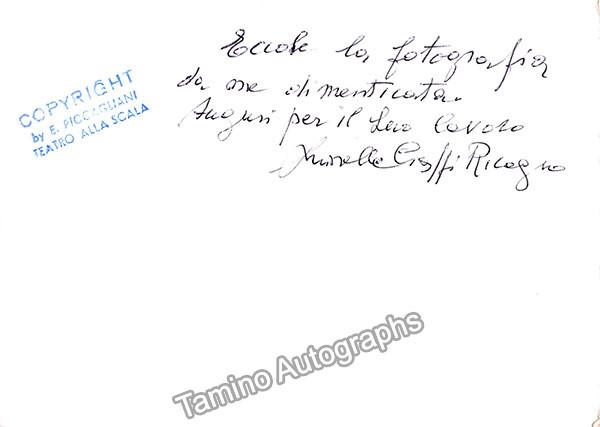 Eccole la fotografia
da me dimenticata.
Auguri per il Suo lavoro
Luisella Ciaffi Ricagno
COPYRIGHT
by E. PICCAGLIANI
TEATRO ALLA SCALA
Tamino Autographs